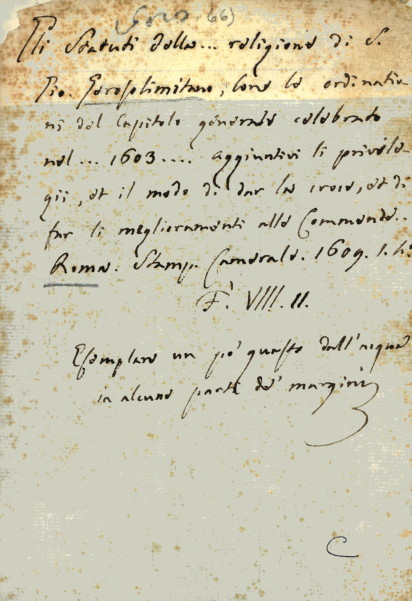 (66)
Gli Statuti della... religione di S.
Gio. Gerosolimitano, con le ordinatio
ni del Capitolo generale celebrato
nel ... 1603 .... aggiuntivi li privile
gii, et il modo di dar la croce, et di
far li meglioramenti alle Commende..
Roma. Stamp. Camerale. 1609. 1. 4o
F. VIII. 11.
Esemplare un pò guasto dall'acqua
in alcune parti de' margini
C